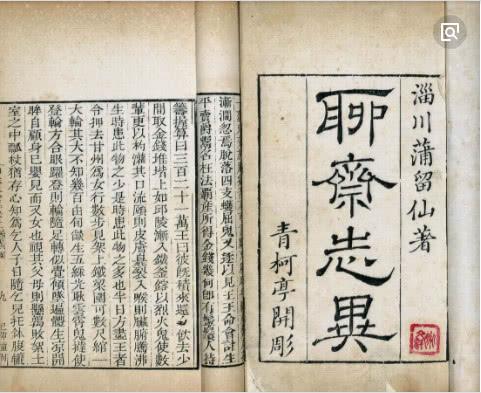 淄川蒲留仙著
聊齋志異
青柯亭開彫
忽焉脫落四支蠕屈鬼又逐以見王王命會計生
平賣爵鬻名枉法霸產所得金錢幾何即有鬚人持
籌握算曰三百二十一萬王曰彼既積來還令飲去少
間取金錢堆堦上如邱陵漸入鐵釜鎔以烈火鬼使數
輩更以杓灌其口流頤則皮膚臭裂入喉則臟腑騰沸
生時患此物之少是時患此物之多也半日方盡王者
令押去甘州為女行數步見架上鐵梁圍可數尺綰一
火輪其大不知幾百由旬燄生五綵光耿雲霄鬼撻使
登輪方合眼躍登則輪隨足轉似覺傾墜遍體生涼開
眸自顧身已嬰兒而又女也視其父母則懸鶉敗絮土
室之中瓢杖猶存心知為乞人子日隨乞兒托鉢腹轆